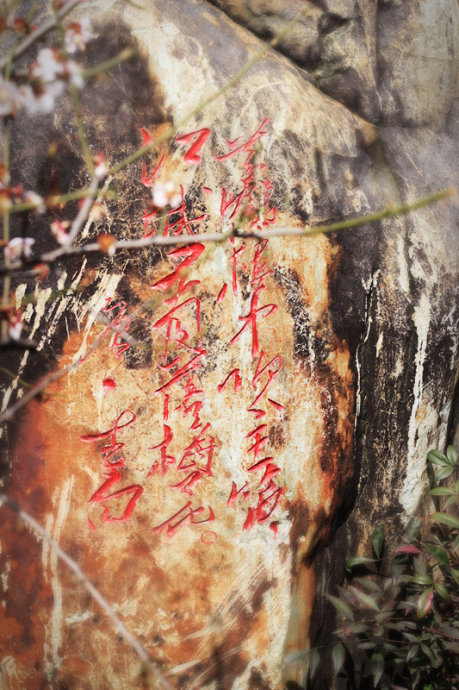 黄鹤楼中吹玉笛
江城五月落梅花。
唐·李白